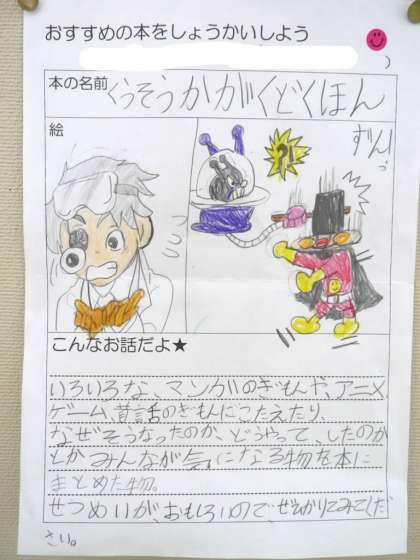 おすすめの本をしょうかいしよう
)
本の名前
くうそうかがくどくほん
絵
?!
ずんっ
こんなお話だよ★
いろいろな、マンガのぎもんや、アニメ
ゲーム、昔話のぎもんにこたえたり、
なぜそうなったのか、どうやって、したのか
とか みんなが気になる物を本に
まとめた物。
せつめいが、おもしろいので、ぜひかりてみてくだ
さい。